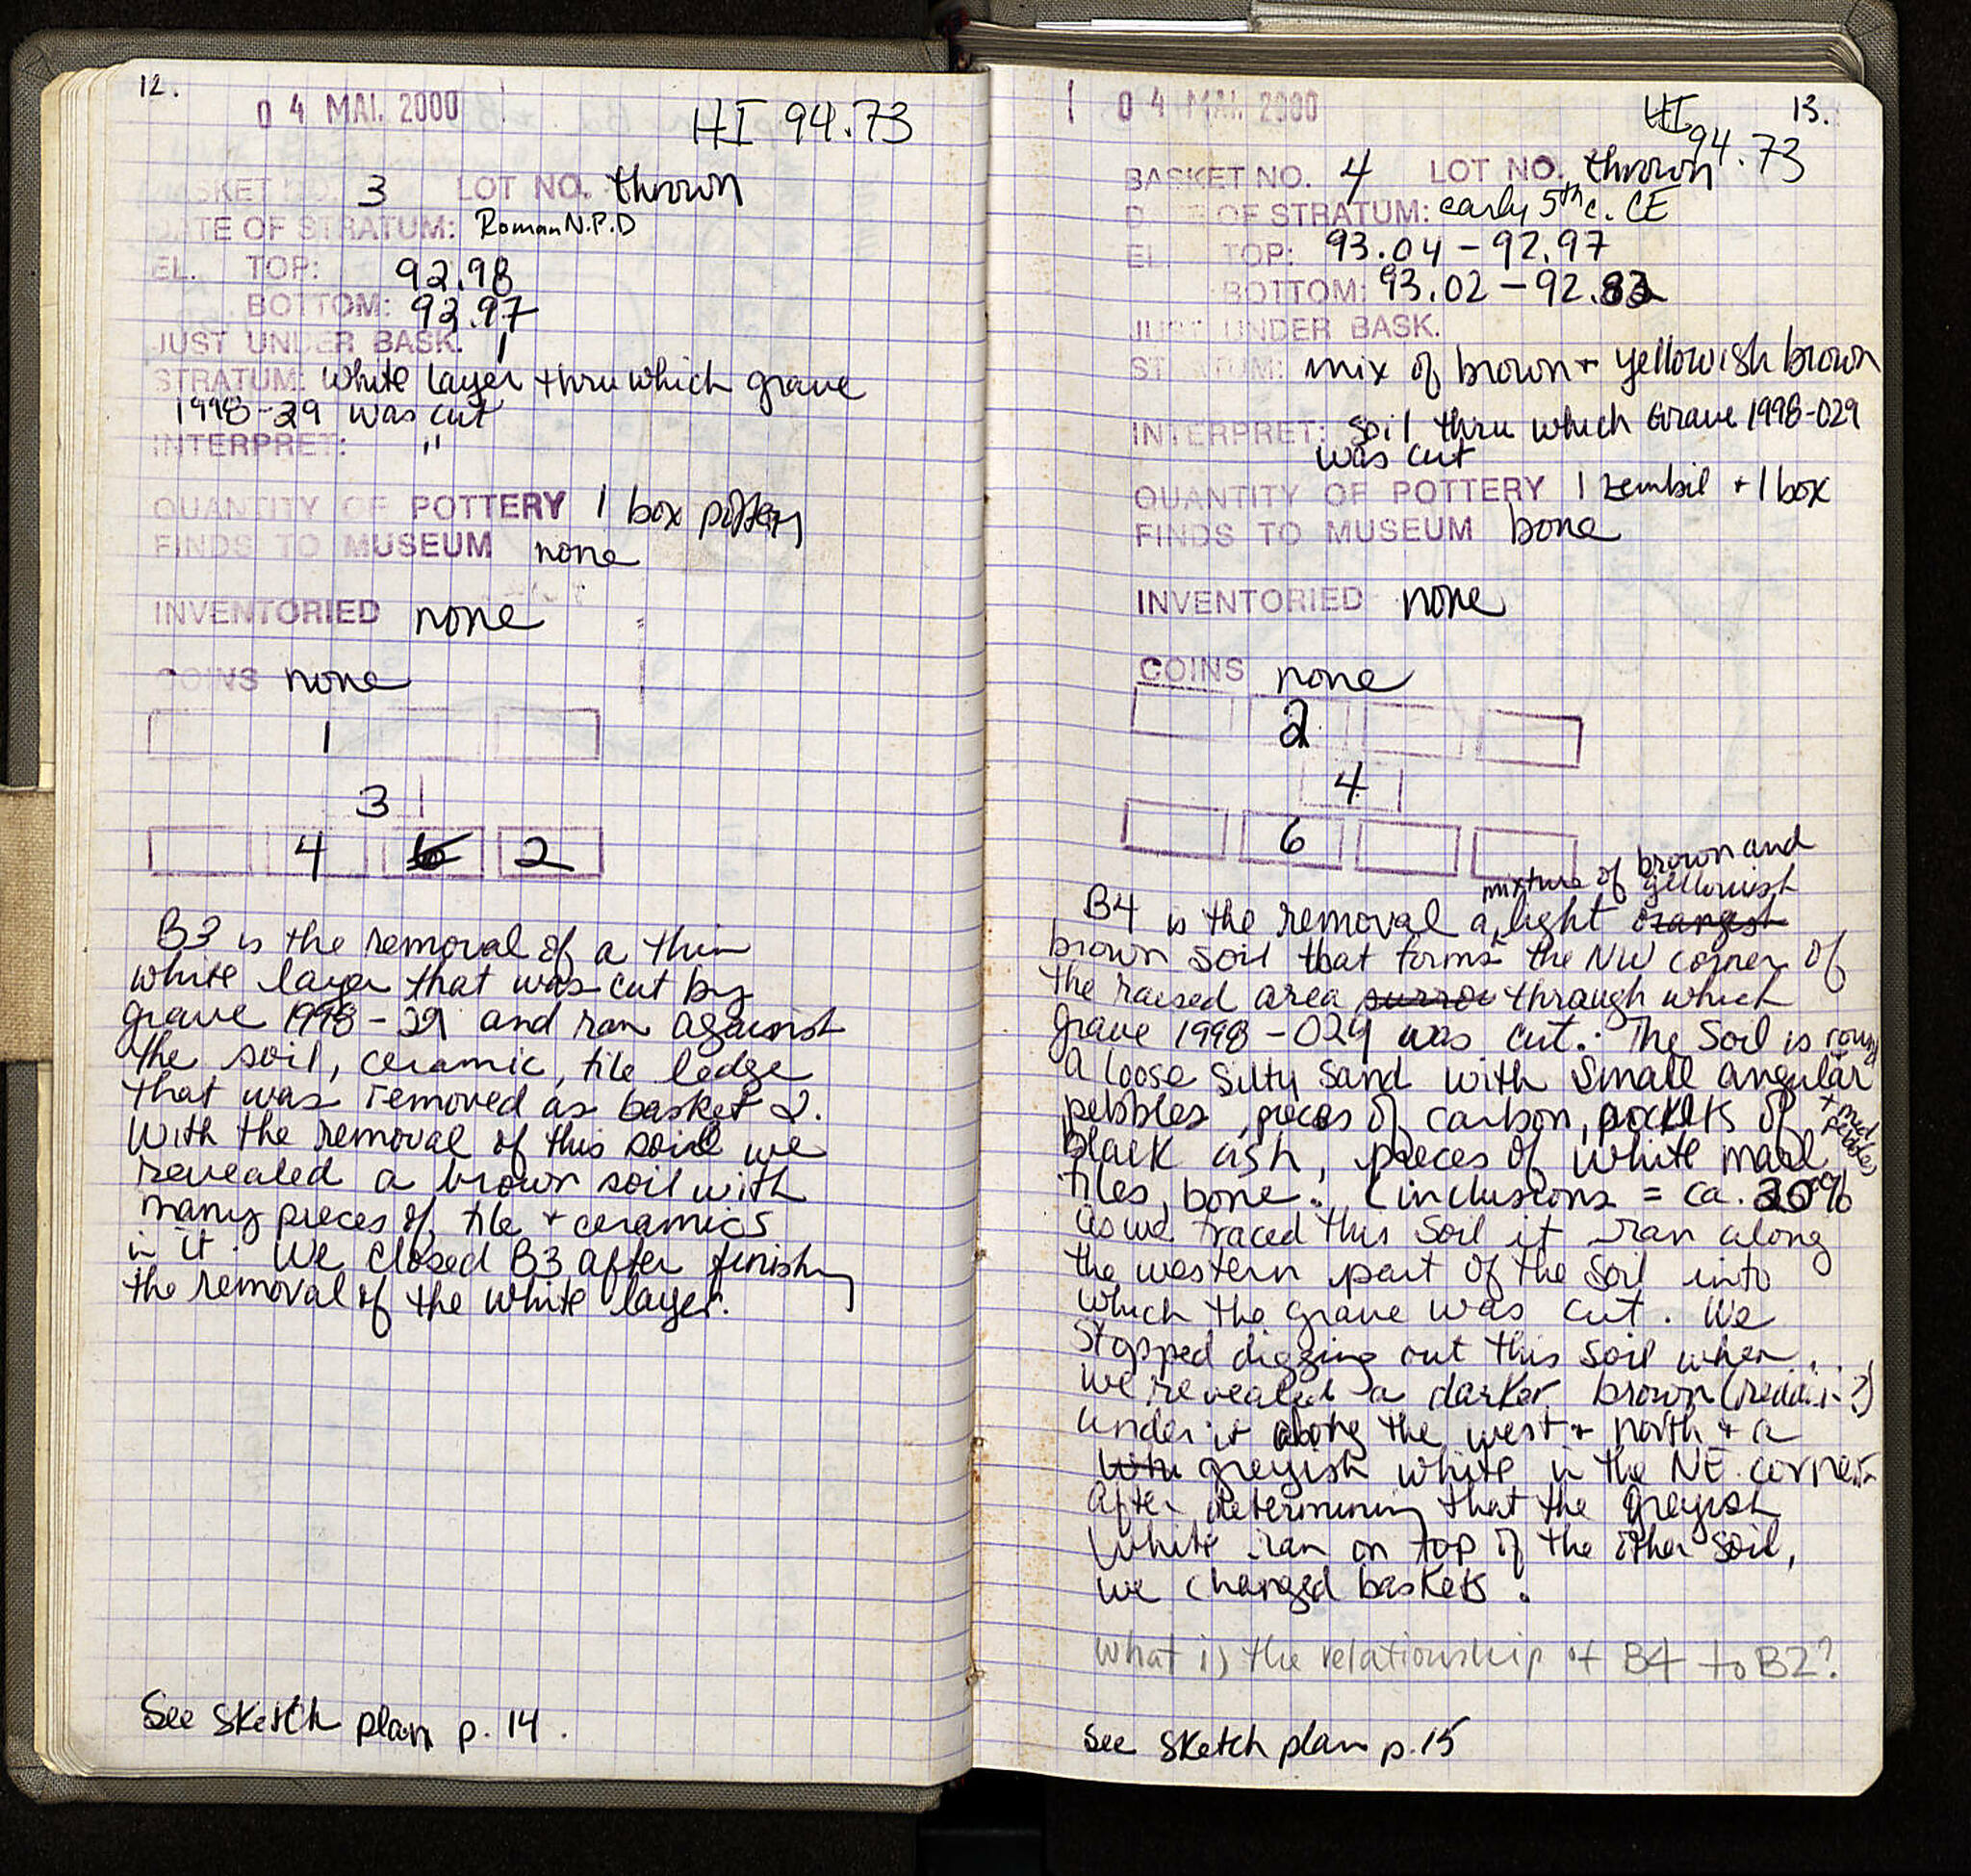 12.
04 MAI. 2000
HI 94.73
BASKET NO. 3 LOT NO. thrown
DATE OF STRATUM: Roman N.P.D
EL. TOP: 92.98
BOTTOM: 92.97
JUST UNDER BASK. 1
STRATUM: white layer thru which grave
1998-29 was cut
INTERPRET: "
QUANTITY OF POTTERY 1 box pottery
FINDS TO MUSEUM none
INVENTORIED none
COINS none
1
3
4 6 2
B3 is the removal of a thin
white layer that was cut by
grave 1998-29 and ran against
the soil, ceramic, tile ledge
that was removed as basket 2.
With the removal of this soil we
revealed a brown soil with
many pieces of tile + ceramics
in it. We closed B3 after finishing
the removal of the white layer.
See sketch plan p. 14.
04 MAI. 2000
HI 13.
94.73
BASKET NO. 4 LOT NO. thrown
DATE OF STRATUM: early 5th c. CE
EL. TOP: 93.04 - 92.97
BOTTOM: 93.02 - 92.82
JUST UNDER BASK.
STRATUM: mix of brown + yellowish brown
INTERPRET: soil thru which Grave 1998-029
was cut
QUANTITY OF POTTERY 1 zembil + 1 box
FINDS TO MUSEUM bone
INVENTORIED none
COINS none
2
4
6
mixture of brown and
yellowish
B4 is the removal a light orangish
brown soil that forms the NW corner of
the raised area through which
grave 1998-029 was cut. The soil is
round
a loose silty sand with small angular
+ med
pebbles, pieces of carbon, pockets of
black ash, pieces of white marl,
tiles, bone. (inclusions = ca. %
as we traced this soil it ran along
the western part of the soil into
which the grave was cut. We
stopped digging out this soil when
we revealed a darker brown
under it along the west + north + a
greyish white in the NE corner.
After determining that the greyish
white ran on top of the other soil,
we changed baskets.
What is the relationship of B4 to B2?
See sketch plan p. 15